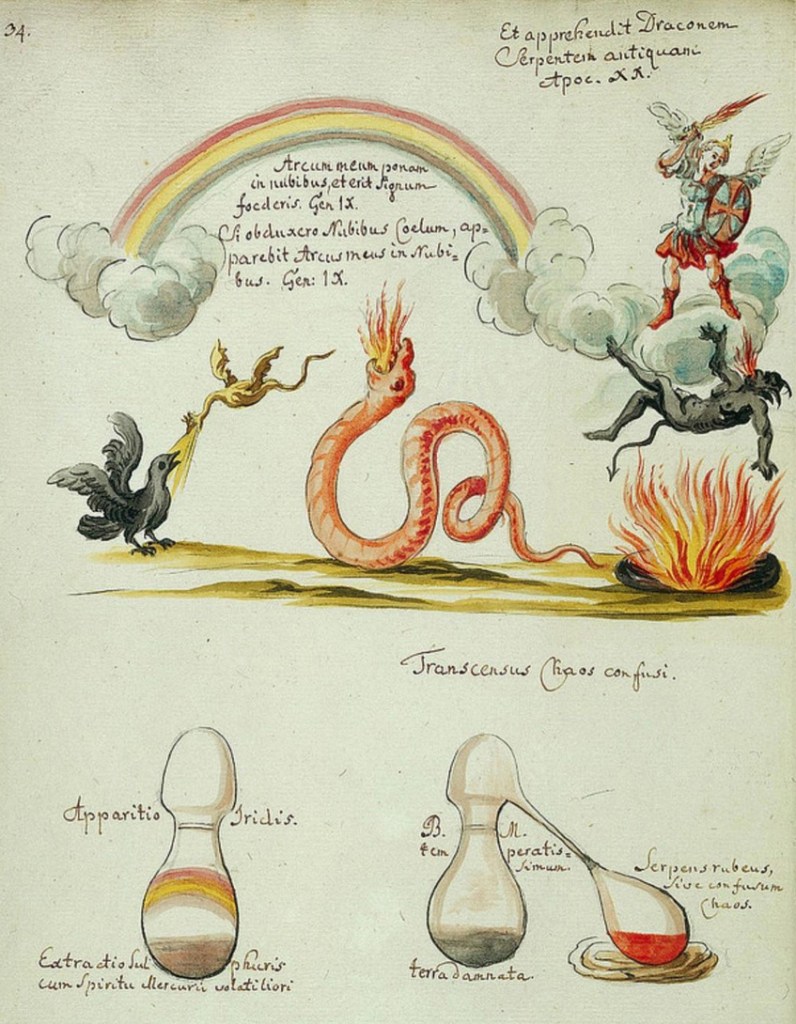 34.
Et apprehendit Draconem
Serpentem antiquam
Apoc. XX.
Arcum meum ponam
in nubibus, et erit Signum
foederis. Gen IX.
Si obduxero Nubibus Coelum, ap=
parebit Arcus meus in Nubi=
bus. Gen: IX.
Transcensus Chaos confusi.
Apparitio Iridis.
Extractio Sul phuris
cum Spiritu Mercurii volatiliori
B. M.
tem peratis=
simum.
terra damnata.
Serpens rubeus,
sive confusum
Chaos.